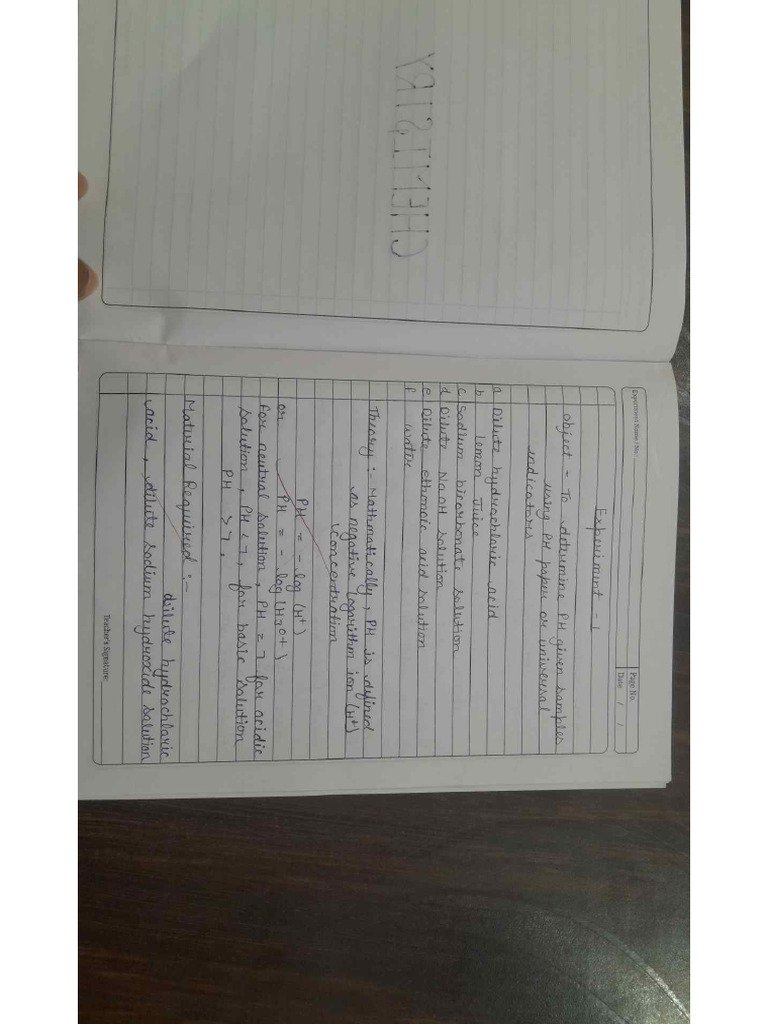 CHEMISTRY
Experiment Name / No.:
Page No.
Date: / /
Experiment - 1
Object - To determine PH given samples
using PH paper or universal
indicators
a Dilute hydrochloric acid
b lemon Juice
c Sodium bicarbonate solution
d Dilute NaOH solution
e Dilute ethonoic acid solution
f water
Theory :- Mathmatically, PH is defined
as negative logarithm ion (H+)
concentration
PH = - log (H+)
or PH = - log (H3O+)
for neutral solution, PH = 7 for acidic
solution, PH < 7, for basic solution
PH > 7.
Material Required :-
dilute hydrochloric
acid, dilute sodium hydroxide solution
Teacher's Signature: